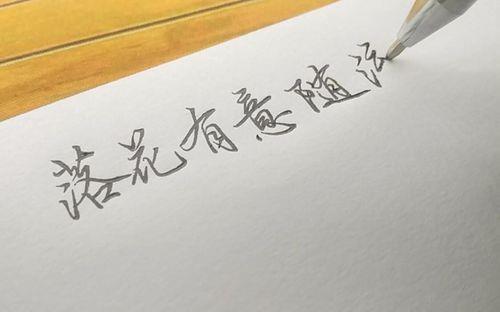 落花有意随流